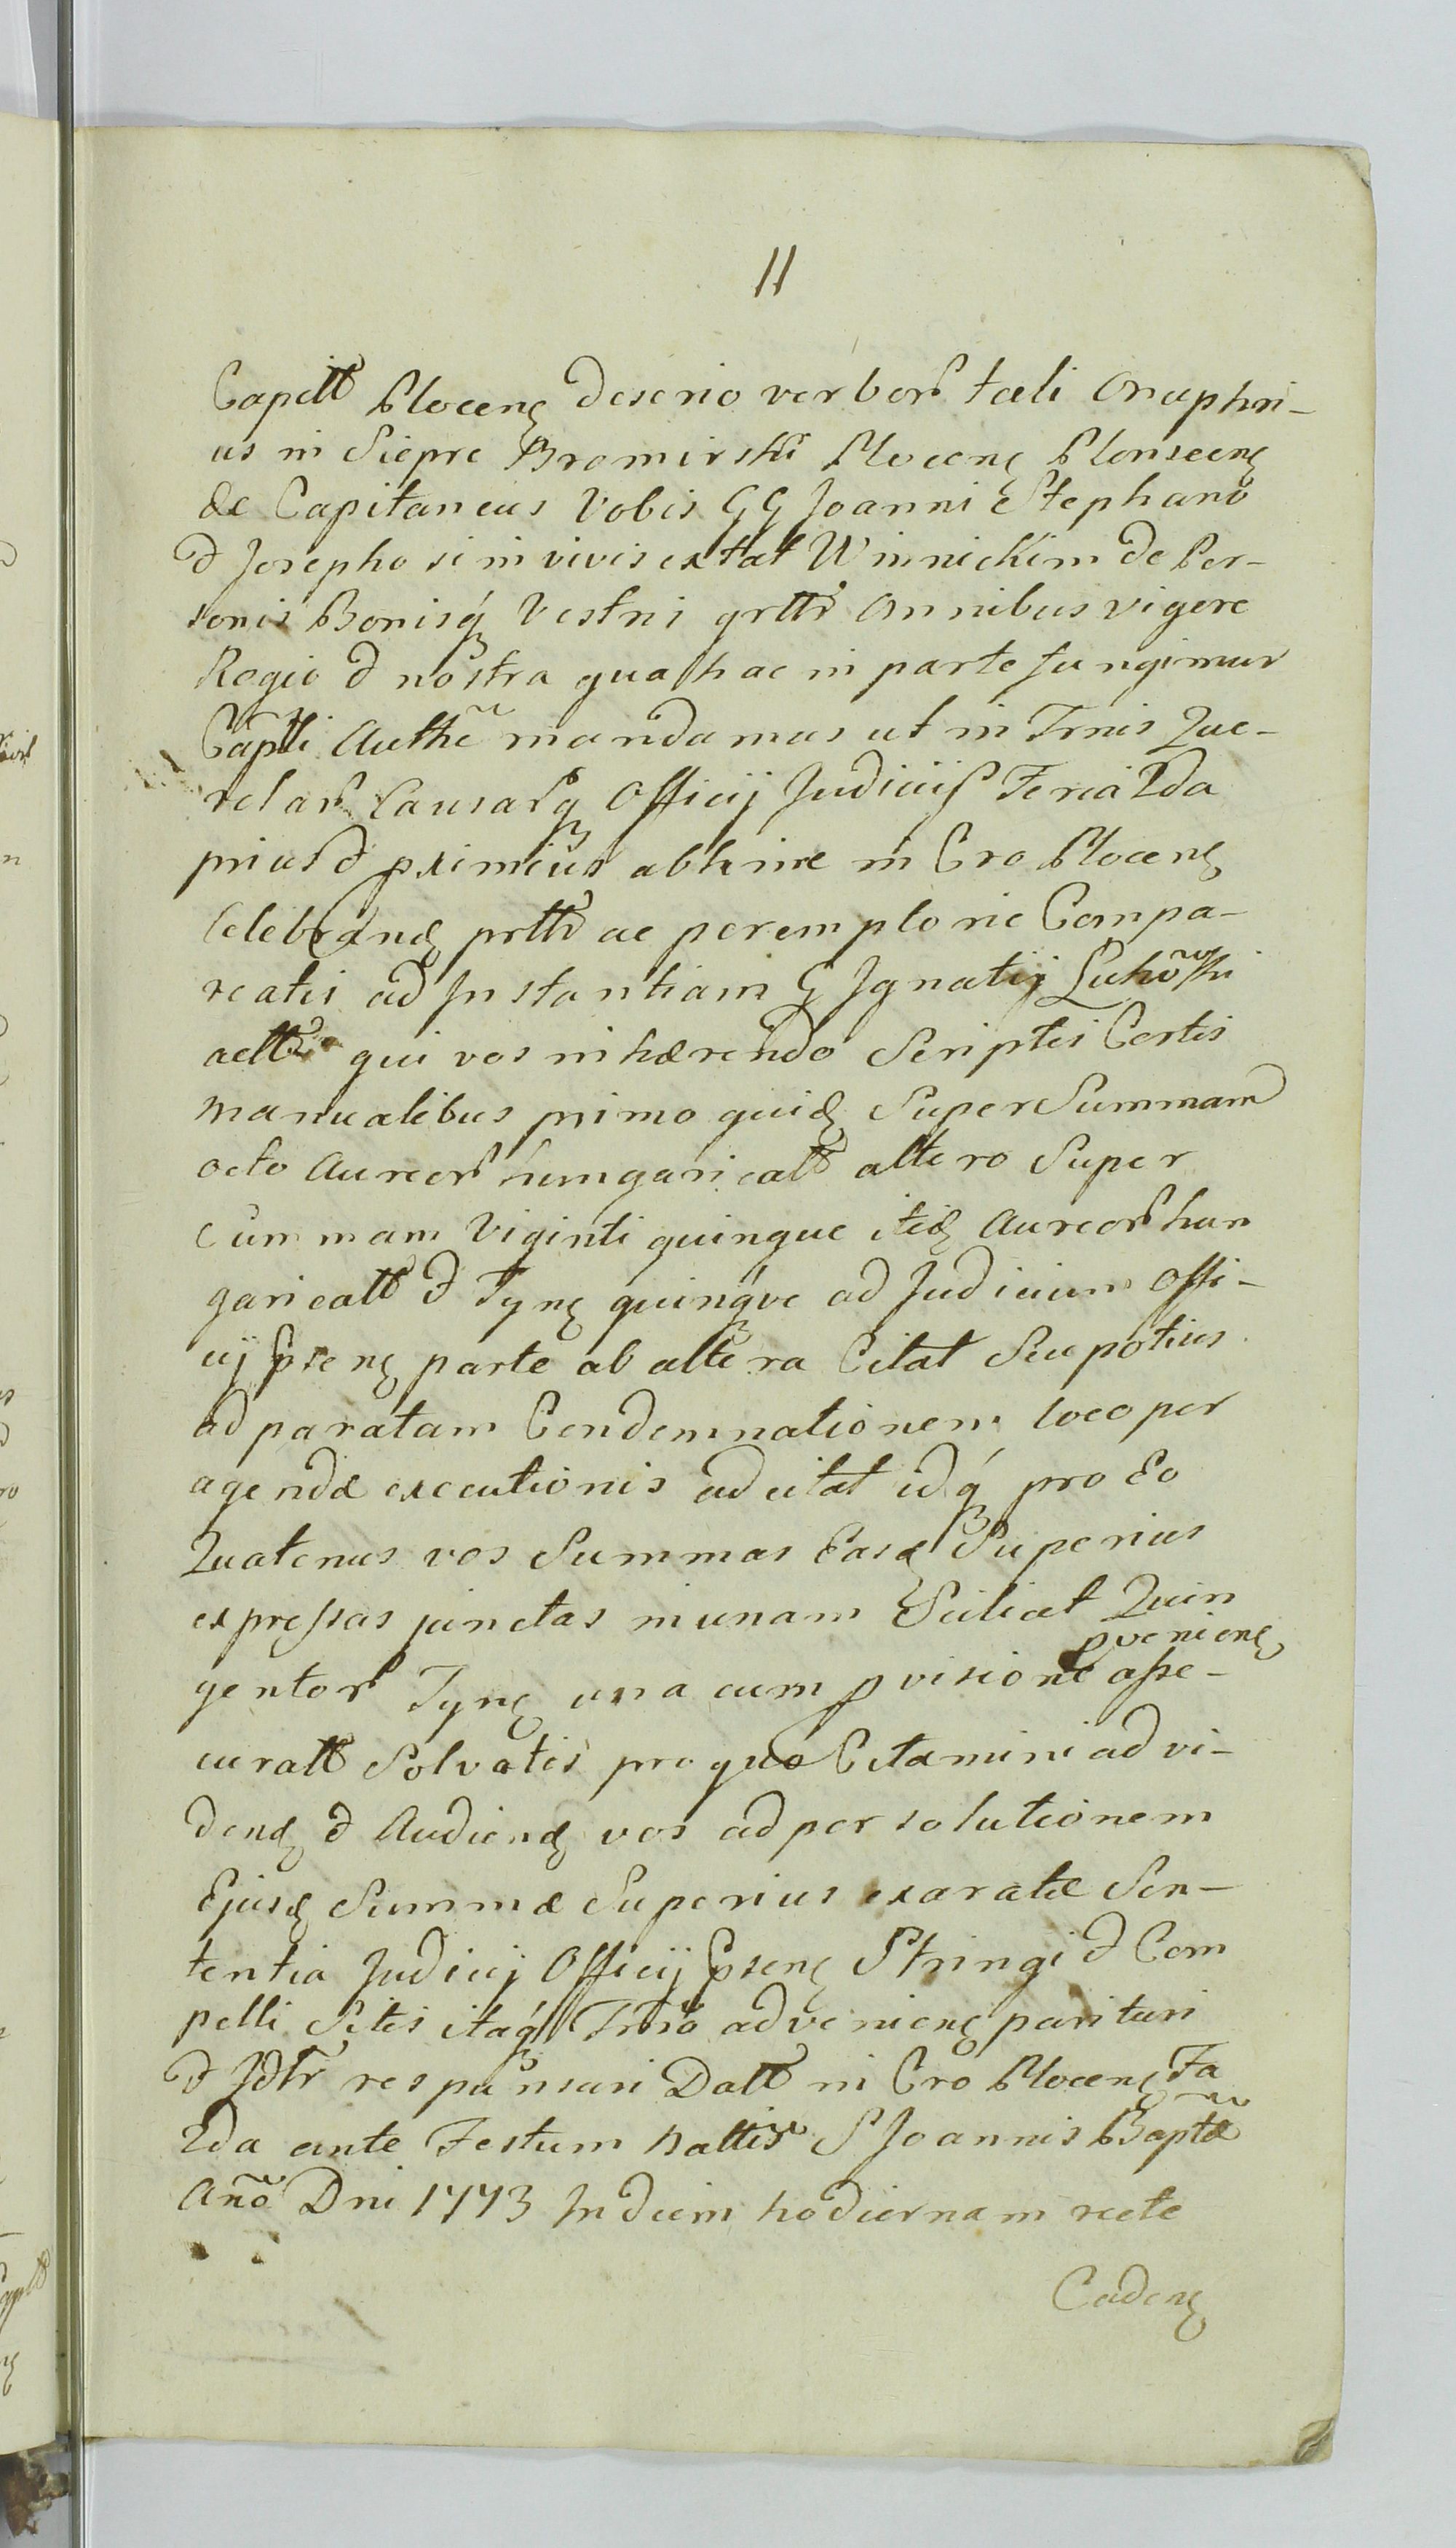 11
Capitt Plocenę deserio verbor tali Onuphri-
us in Siepre Bromirski Plocenę Plonscenę
&c Capitaneus Vobis GG Joanni Stephano
& Josepho si in vivis extat Winnickim de Per-
sonis Bonisq́ Vestris grttr Omnibus vigore
Regio & nostra qua hac in parte fungimur
Captli Authe mandamus ut in Trnis Que-
relar Causarq Officij Judiciis Feria 2da
prius & pximius abhinc in Cro Plocenę
Celebrandę prttr ac peremptorie Compa-
reatis ad Instantiam G Ignatij
actt qui vos inhærendo Scriptis Certis
manualibus primo quidę Super Summam
octo Aureor hungaricalt altero Super
Summam Viginti quinque itidę Aureor hun
garicalt & Tynę quinq́ve ad Judicium Offi-
cij Psenę parte ab altera Citat Seu potius
ad paratam Condemnationem loco per
agendæ executionis adcitat idq́ pro Eo
Quatenus vos Summas Easdę Superius
expressas junctas in unam Scilicet Quin
gentor Tynę una cum pvisione pvenienę asse-
curatt Solvatis pro quo Citamini ad vi-
dendę & Audiendę vos ad persolutionem
Ejusdę Summæ Superius exaratæ Sen-
tentia Judicij Officij Psenę Stringi & Com
pelli Sitis itaq́ Trno advenienę parituri
& Jdtr responsuri Datt in Cro Plocenę Fa
2da ante Festum Nattis S Joannis Baptæ
Año Dni 1773 In diem hodiernam recte
Cadenę